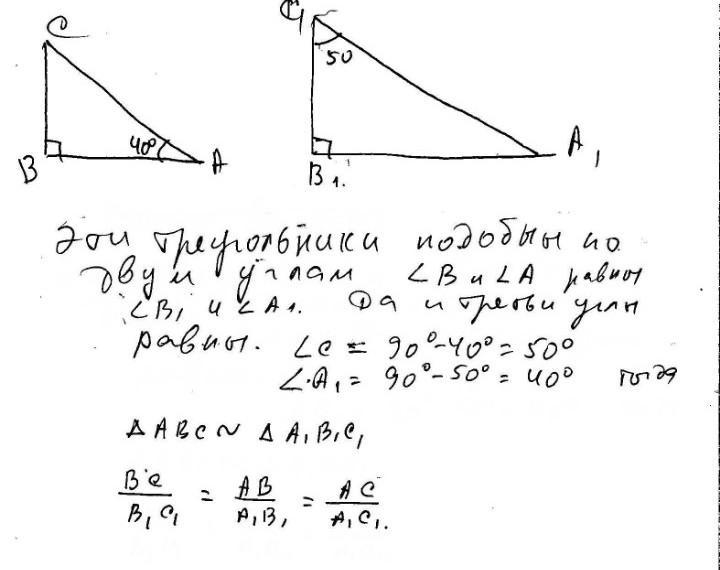 C
40°
B
A
C₁
50
B₁.
A₁
Эти треугольники подобны по
двум углам ∠B и ∠A равны
∠B₁ и ∠A₁. Да и третьи углы
равны. ∠C = 90°-40° = 50°
∠A₁ = 90° - 50° = 40° тогда
Δ ABC ~ Δ A₁B₁C₁
BC/B₁C₁ = AB/A₁B₁ = AC/A₁C₁.